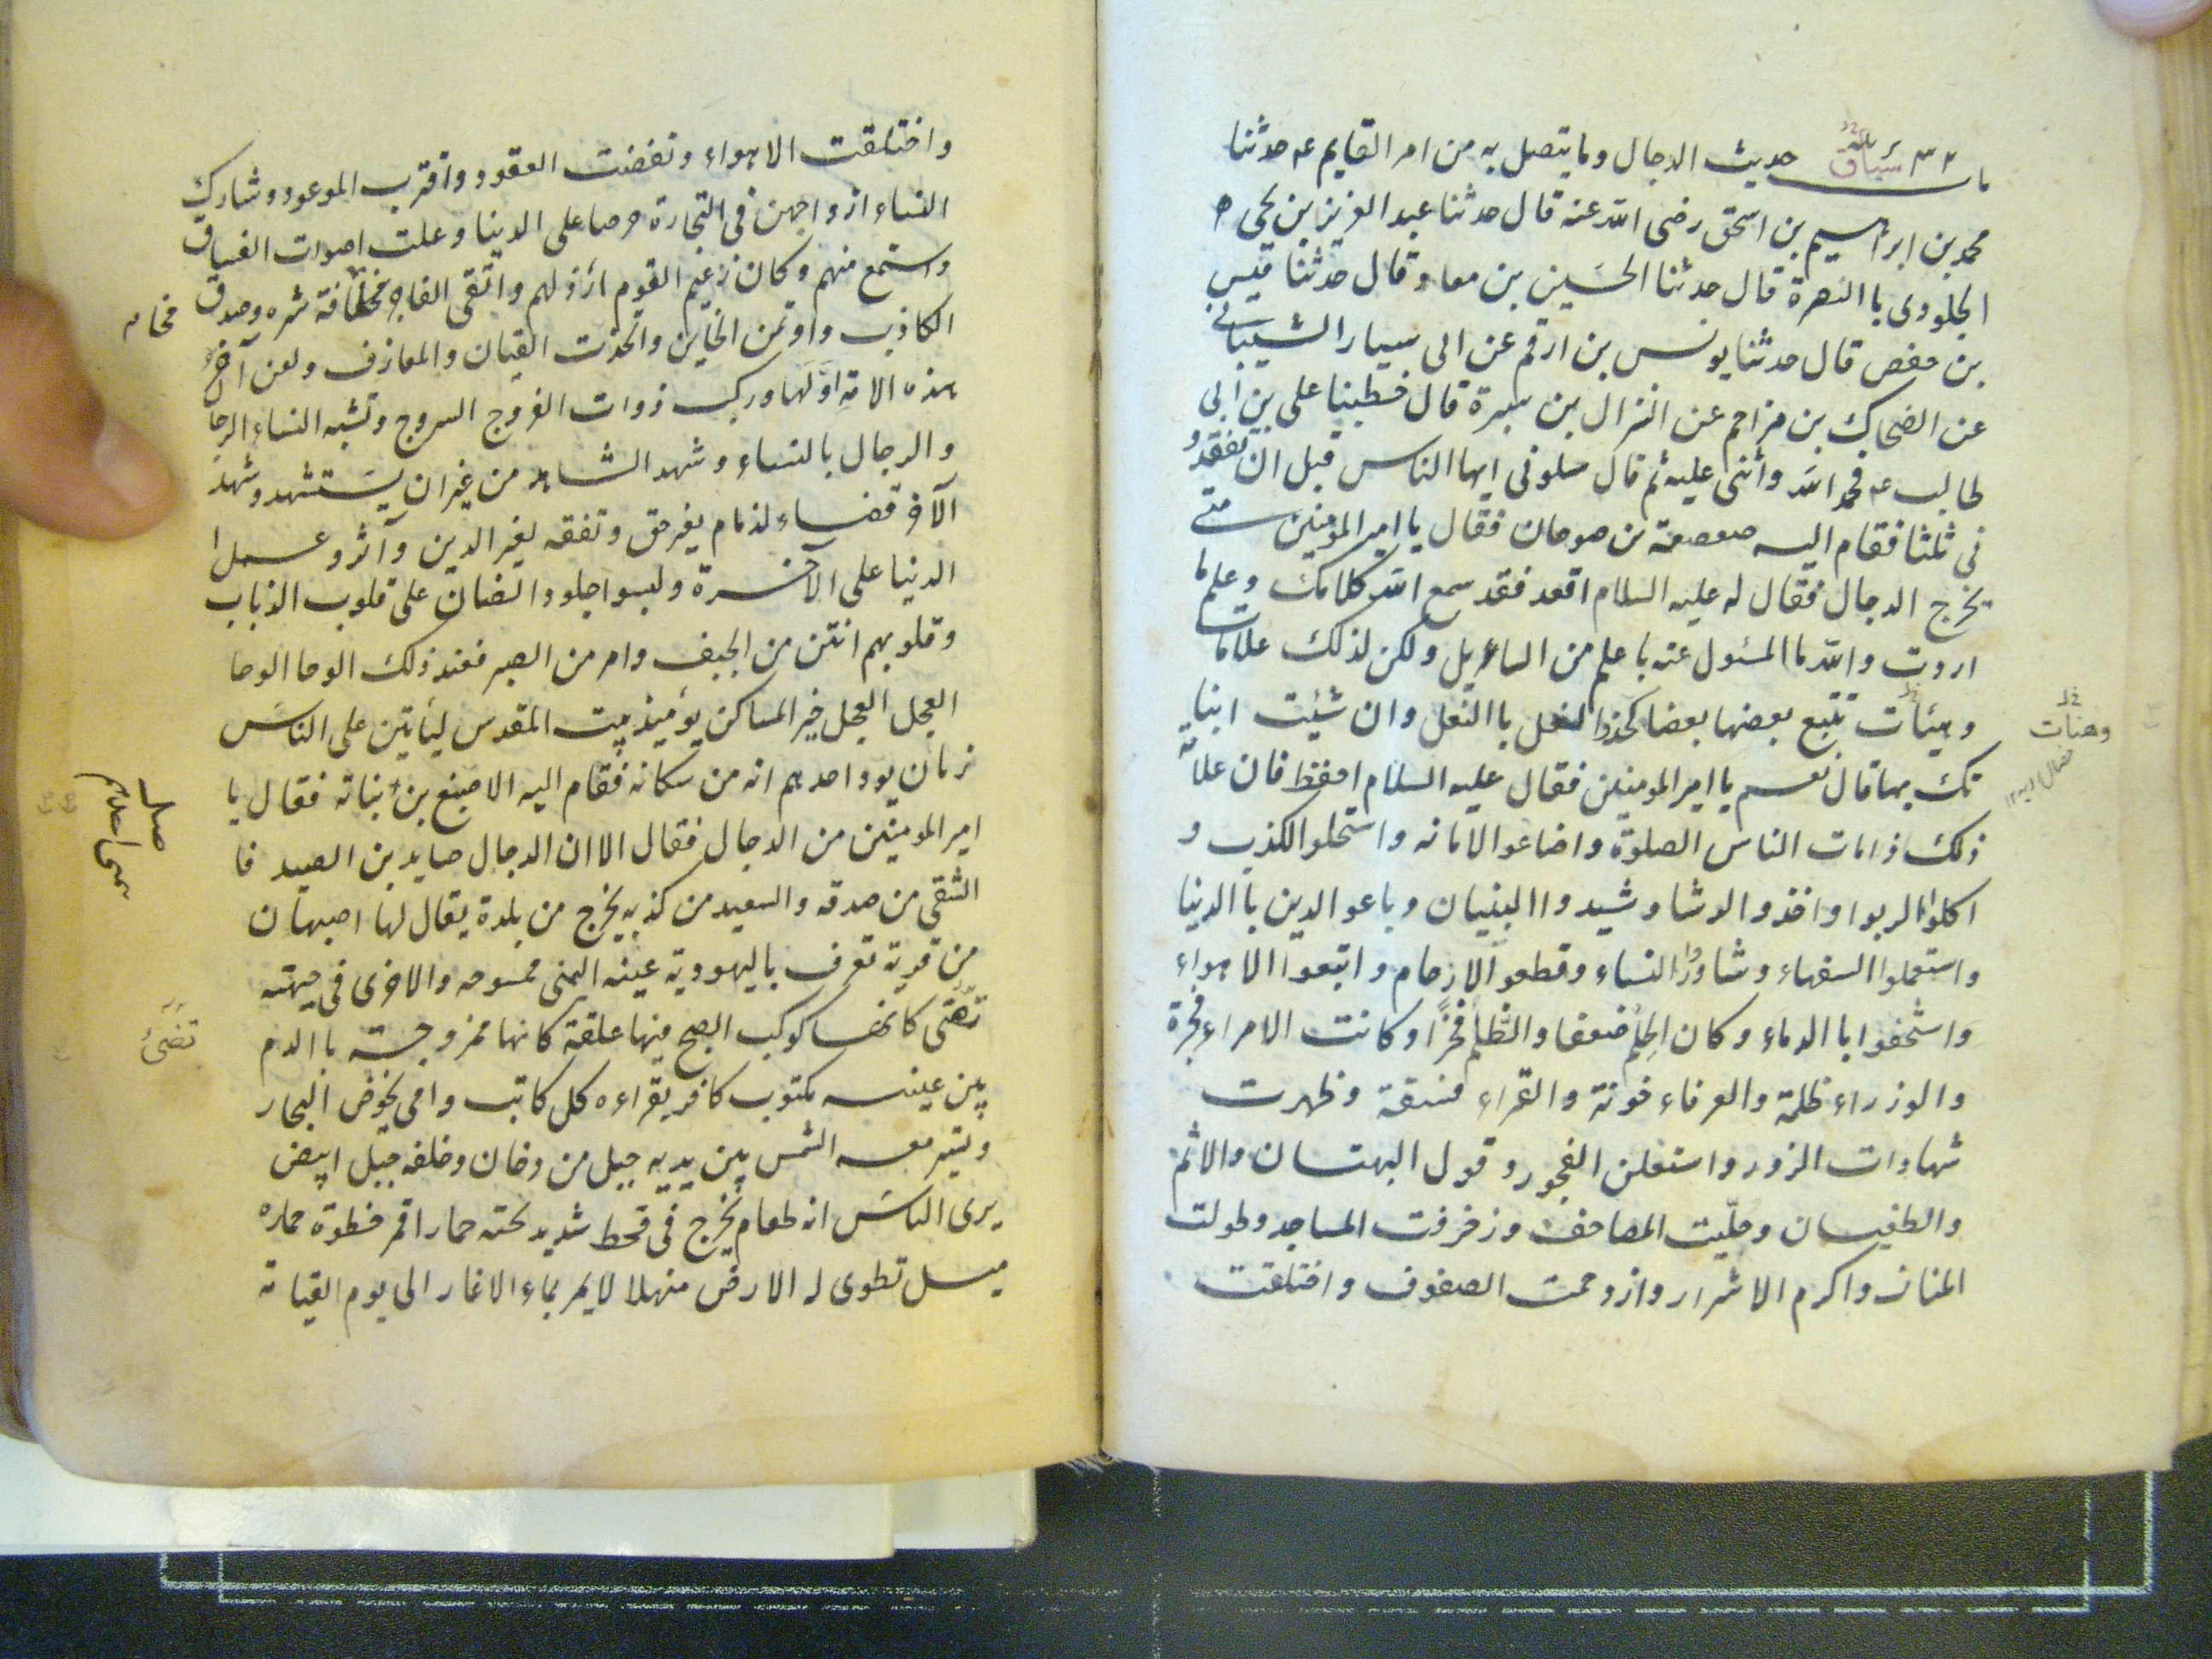 حديث الدجال وما يتصل به من امر القايم عه حدثنا
محمد بن ابراهيم بن اسحق رضى الله عنه قال حدثنا عبد العزيز بن يحيى
الجلودى با البصرة قال حدثنا الحسَين بن معاد قال حدثنا قيس
بن حفص قال حدثنا يونس بن ارقم عن ابى سيار الشيبانى
عن الضحاك بن مزاحم عن النزال بن سبرة قال خطبنا على بن ابى
طالب عه فحمد الله وأثنى عليه ثم قال سلونى ايها الناس قبل ان تفقدو
نى ثلثا فقام اليه صعصعة بن صوحان فقال يا امير المؤمنين متى
يخرج الدجال فقال له عليه السلام اقعد فقد سمع الله كلامك وعلم ما
اردت والله ما المسئول عنه باعلم من السائل ولكن لذلك علامات
وهيئات تتبع بعضها بعضا كحذو النعل با النعل وان شئت انبا
تك بها قال نعم يا امير المومنين فقال عليه السلام احفظ فان علامة
ذلك اذا مات الناس الصلوة واضاعو الامانه واستحلوا الكذب و
اكلوا الربوا واخذو الرشا وشيد واا البنيان وباعو الدين با الدنيا
واستعملوا السفهاء وشاوروا النساء وقطعوا الارحام واتبعوا الاهواء
واستخفوا با الدماء وكان الحِلم ضعفا والظلم فخرًا وكانت الامراء فجرة
والوزراء ظلمة والعرفاء خونة والقراء فسقة وظهرت
شهادات الزور واستعلن الفجور وقول البهتان والاثم
والطغيان وحلّيت المصاحف وزخرفت المساجد وطولت
المنار واكرم الاشرار وازدحمت الصفوف واختلفت
وهنات
واختلفت الاهواء ونقضت العقود واقترب الموعود وشارك
النساء ازواجهن فى التجارة حرصا على الدنيا وعلت اصوات الفساق
واستمع منهم وكان زعيم القوم ارذلهم واتقى الفاجر مخافة شره وصدق
الكاذب واوتمن الخاين واتخذت القيان والمعازف ولعن آخر
هذه الامة اوّلها وركب ذوات الفروج السروج وتشبه النساء الرجا
والرجال بالنساء وشهد الشاهد من غير ان يستشهد وشهد
الآخر قضاء لذمام بغير حق وتفقه لغير الدين وآثروعمل ا
الدنيا على الآخرة ولبسوا جلود الضان على قلوب الذياب
وقلوبهم انتن من الجيف وامر من الصبر فعند ذلك الوحا الوحا
العجل العجل خير المساكن يومَئِذ بيت المقدس ليأتين على الناس
زمان يود احدهم انه من سكانه فقام اليه الاصبغ بن نباته فقال يا
امير المومنين من الدجال فقال الا ان الدجال صايد بن الصيد فا
لشقى من صدقه والسعيد من كذبه يخرج من بلدة يقال لها اصبهان
من قرية تعرف باليهودية عينه اليمنى ممسوحه والاخرى فى جبهته
كانها كوكب الصبح فيها علقة كانها ممزوجة با الدم
بين عينيه مكتوب كافر يقراءه كل كاتب وامى يخوض البحار
وتسير معه الشمس بين يديه جبل من دخان وخلفه جبل ابيض
يرى الناسَ انه طعام يخرج فى قحط شديد تحته حمار اقمر خطوة حماره
ميل تطوى له الارض منهلا لا يمر بماء الا غار الى يوم القيامة
تضئ